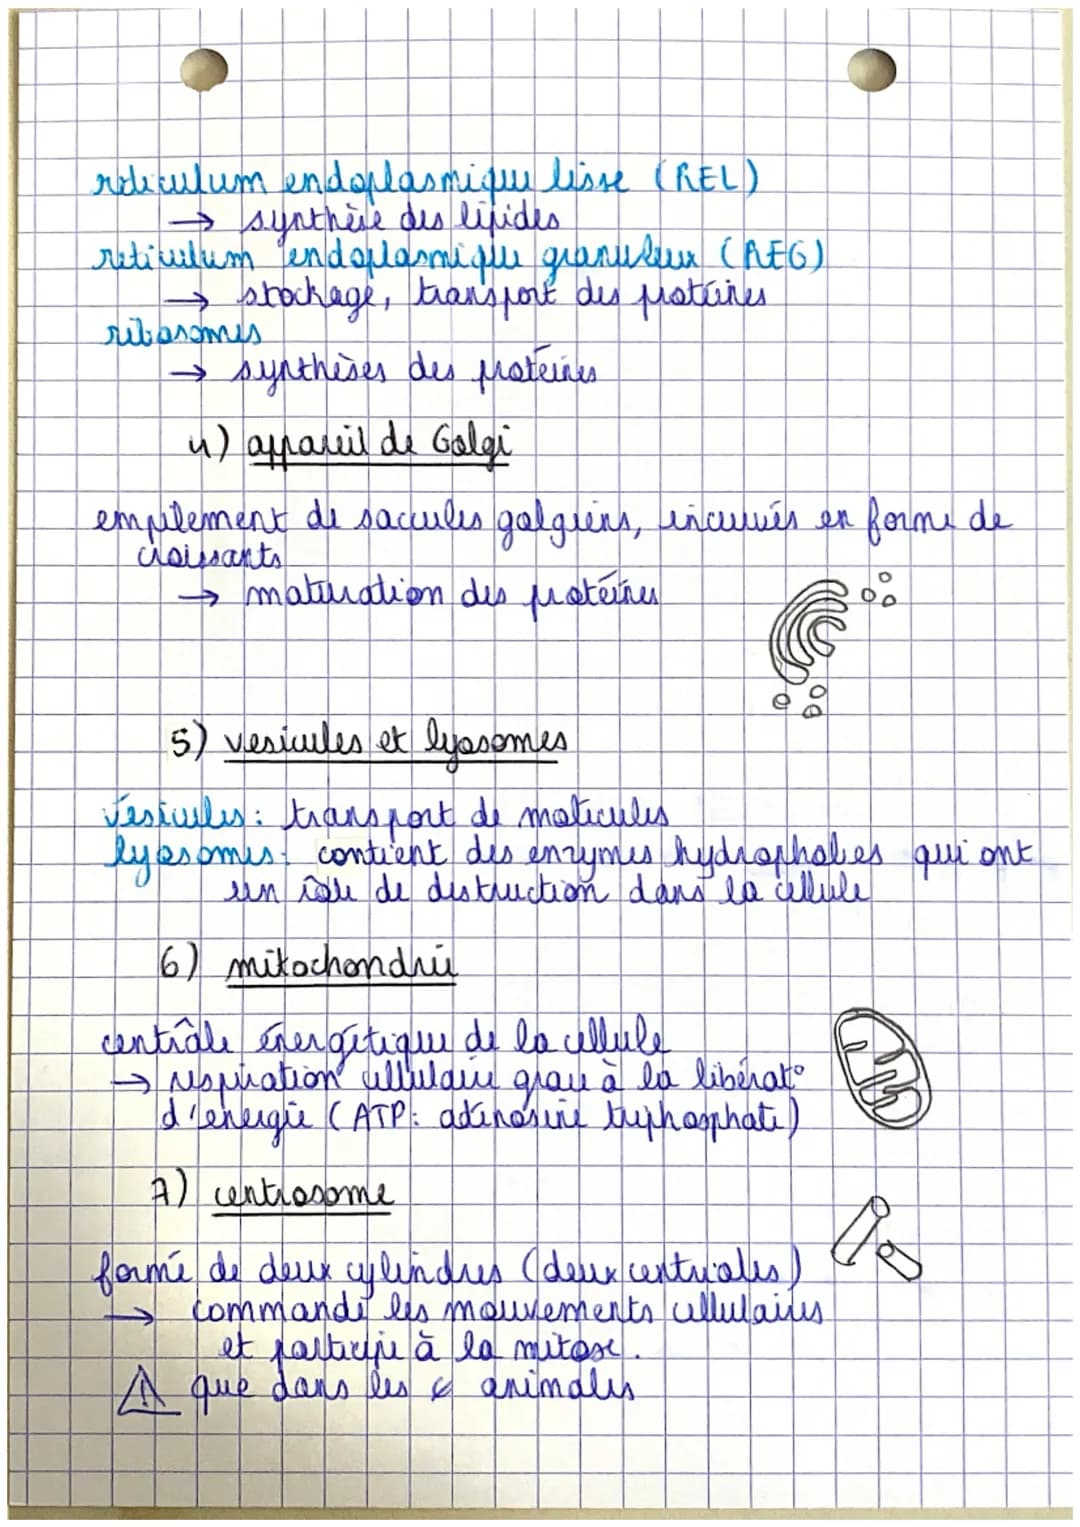 reticulum endoplasmique lisse (REL)
→ synthèse des lipides
reticulum endoplasmique granuleux (REG)
→ stockage, transport des protéines
ribosomes
→ synthèses des protéines
4) appareil de Golgi
empilement de saccules golgiens, incurvés en forme de
croissants
→ maturation des protéines
5) vesicules et lyosomes
vésicules : transport de molécules
lyosomes : contient des enzymes hydrophobes qui ont
un rôle de destruction dans la cellule
6) mitochondrie
centrâle énergétique de la cellule
→ respiration cellulaire grace à la libérat°
d'énergie (ATP : adénosine triphosphate)
7) centrosome
formé de deux cylindres (deux centrioles)
→ commande les mouvements cellulaires
et participe à la mitose.
⚠ que dans les ¢ animales